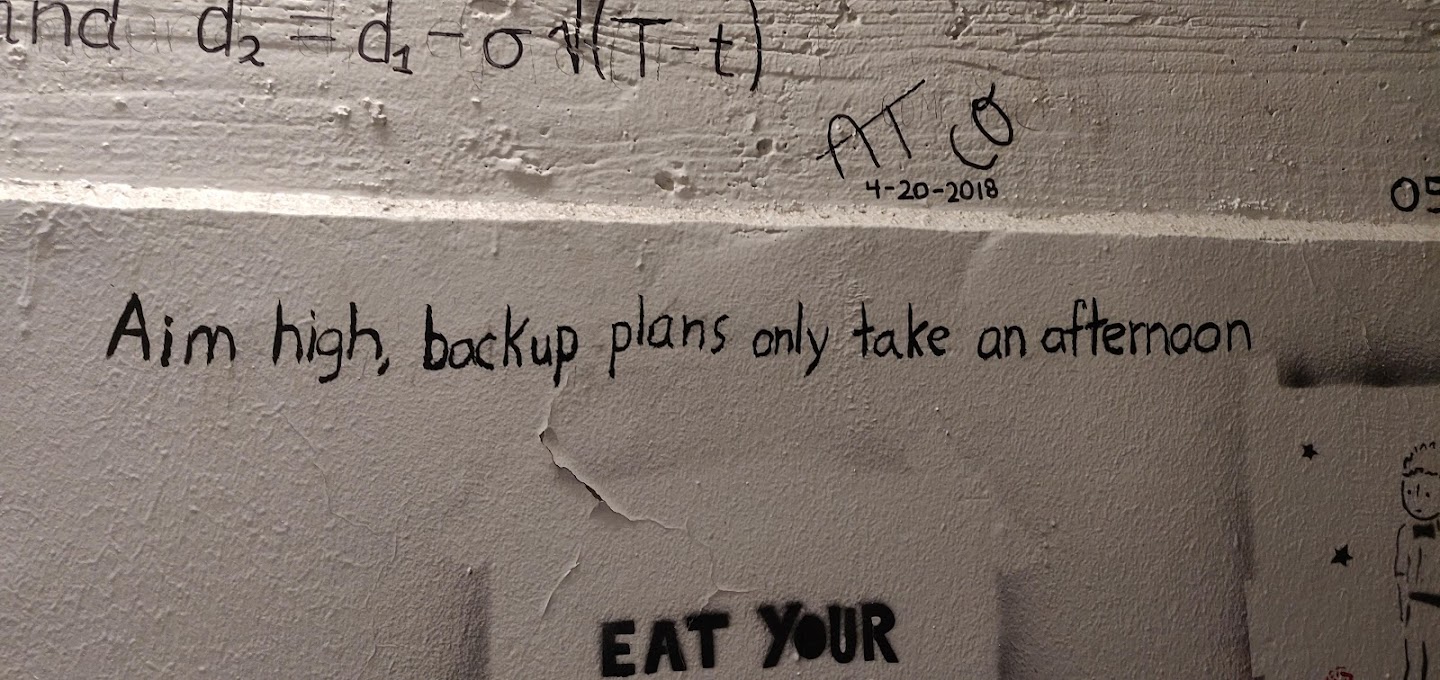 and d₂ = d₁ - σ √(T-t)
4-20-2018
Aim high, backup plans only take an afternoon
EAT YOUR